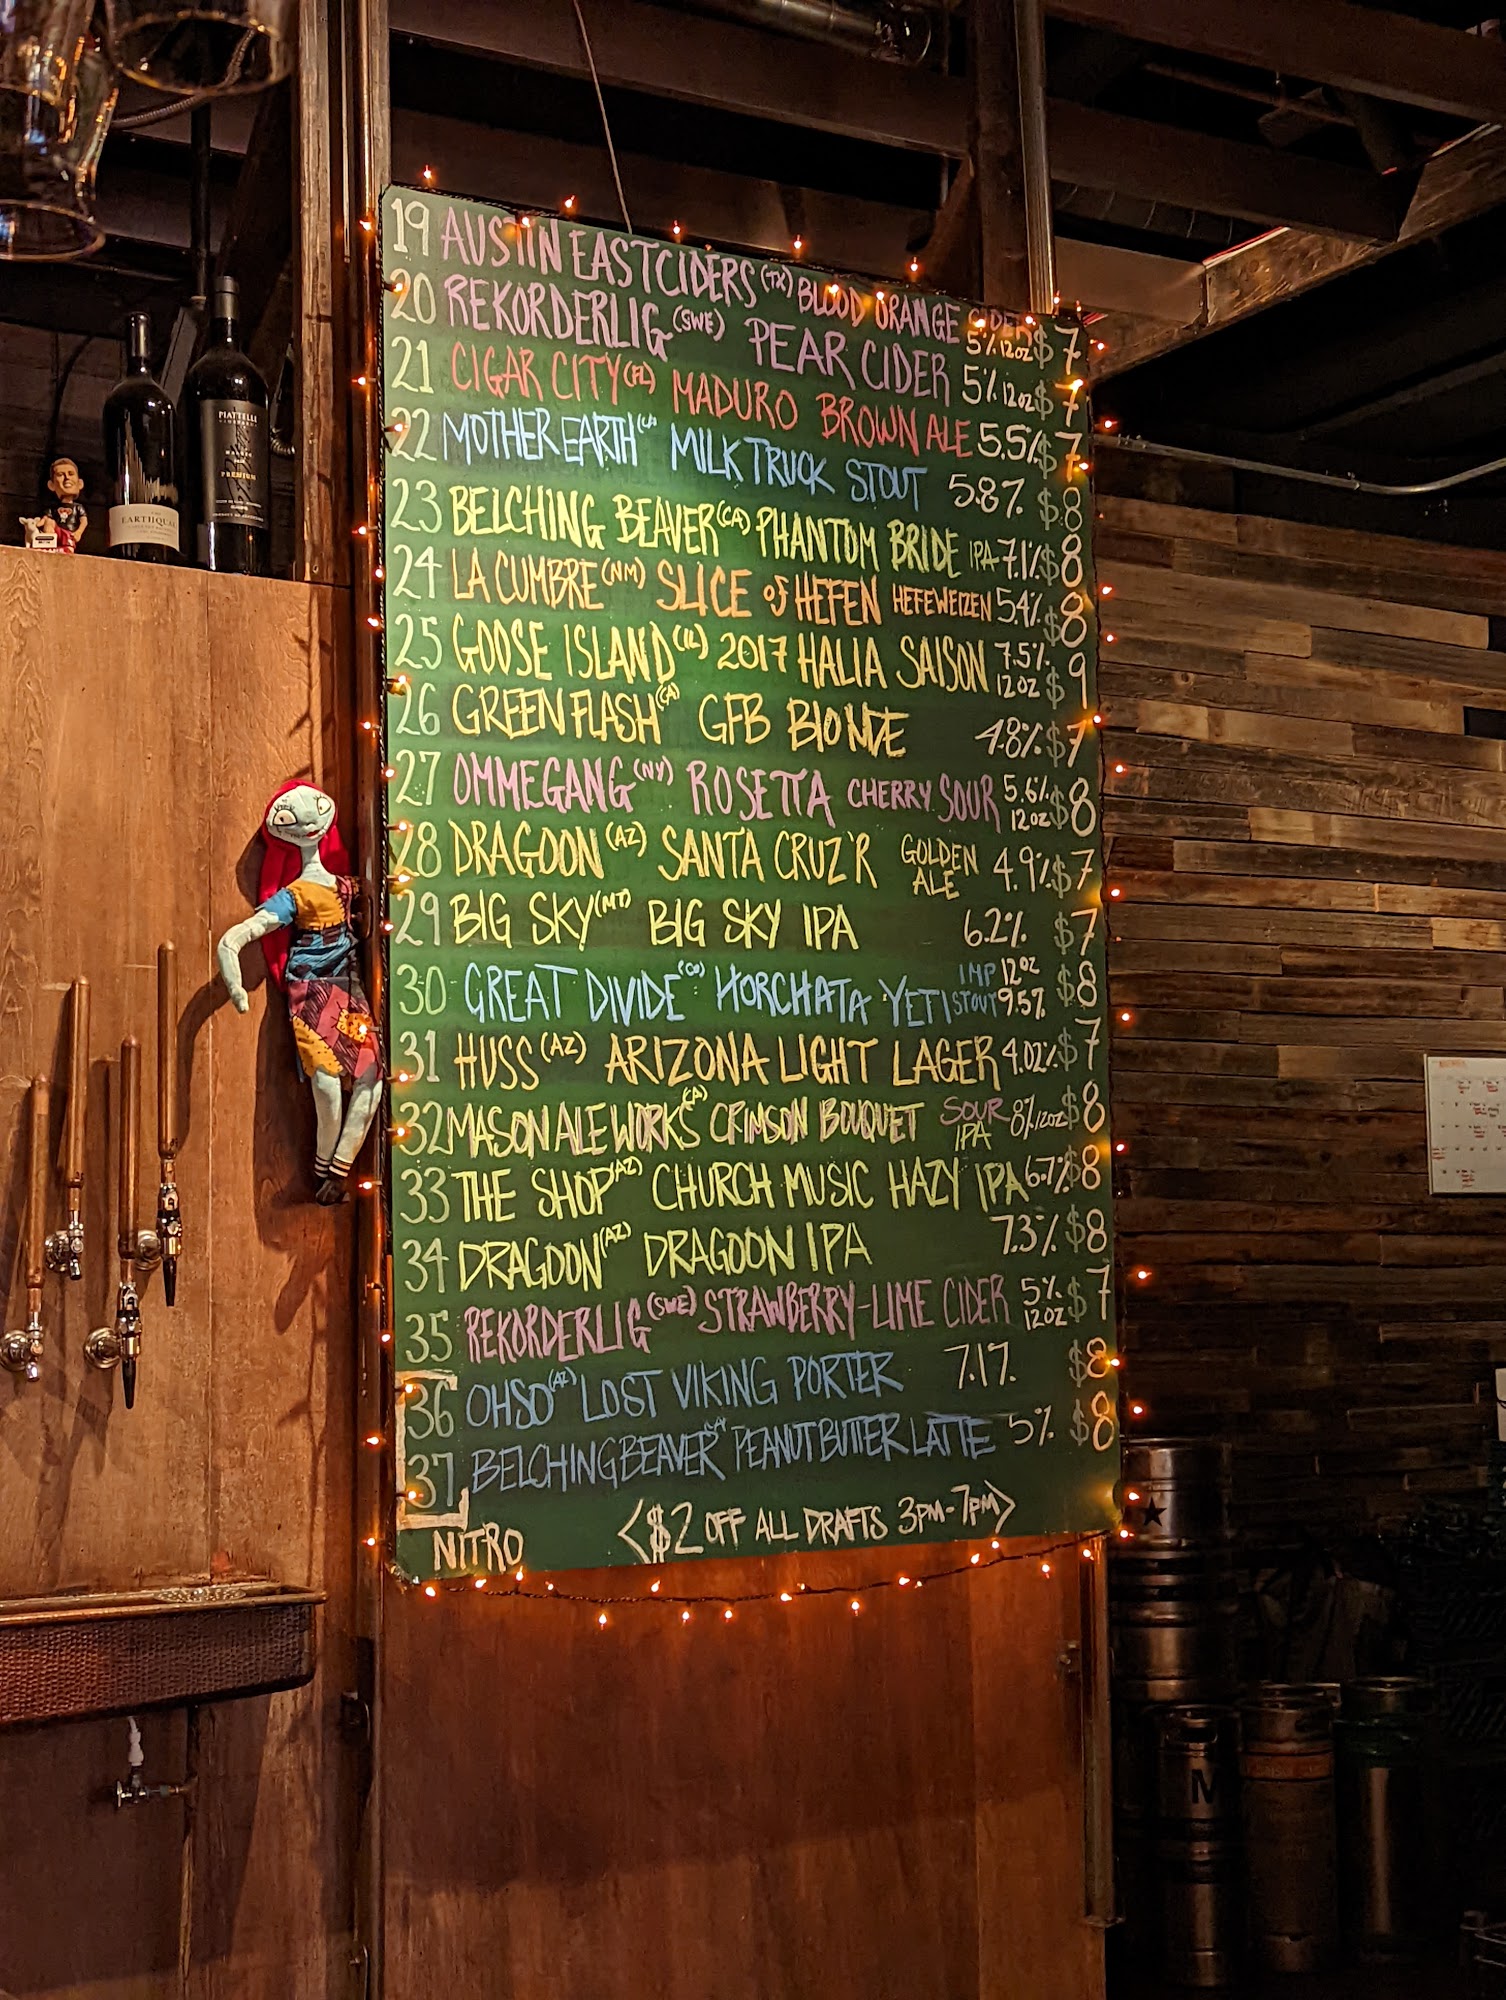 19 AUSTIN EASTCIDERS (TX) BLOOD ORANGE CIDER 5% 12oz $7
20 REKORDERLIG (SWE) PEAR CIDER 5% 12oz $7
21 CIGAR CITY (FL) MADURO BROWN ALE 5.5% $7
22 MOTHER EARTH (CA) MILK TRUCK STOUT 5.8% $8
23 BELCHING BEAVER (CA) PHANTOM BRIDE IPA 7.1% $8
24 LA CUMBRE (NM) SLICE of HEFEN HEFEWEIZEN 5.4% $8
25 GOOSE ISLAND (IL) 2017 HALIA SAISON 7.5% 12oz $9
26 GREEN FLASH (CA) GFB BLONDE 4.8% $7
27 OMMEGANG (NY) ROSETTA CHERRY SOUR 5.6% 12oz $8
28 DRAGOON (AZ) SANTA CRUZ'R GOLDEN ALE 4.9% $7
29 BIG SKY (MT) BIG SKY IPA 6.2% $7
30 GREAT DIVIDE (CO) HORCHATA YETI IMP STOUT 12oz 9.5% $8
31 HUSS (AZ) ARIZONA LIGHT LAGER 4.02% $7
32 MASON ALE WORKS (CA) CRIMSON BOUQUET SOUR IPA 8% 12oz $8
33 THE SHOP (AZ) CHURCH MUSIC HAZY IPA 6.7% $8
34 DRAGOON (AZ) DRAGOON IPA 7.3% $8
35 REKORDERLIG (SWE) STRAWBERRY-LIME CIDER 5% 12oz $7
36 OHSO (AZ) LOST VIKING PORTER 7.1% $8
37 BELCHING BEAVER (CA) PEANUT BUTTER LATTE 5% $8
NITRO <$2 OFF ALL DRAFTS 3PM-7PM>
PIATTELLI
PREMIUM
EARTHQUAKE
M